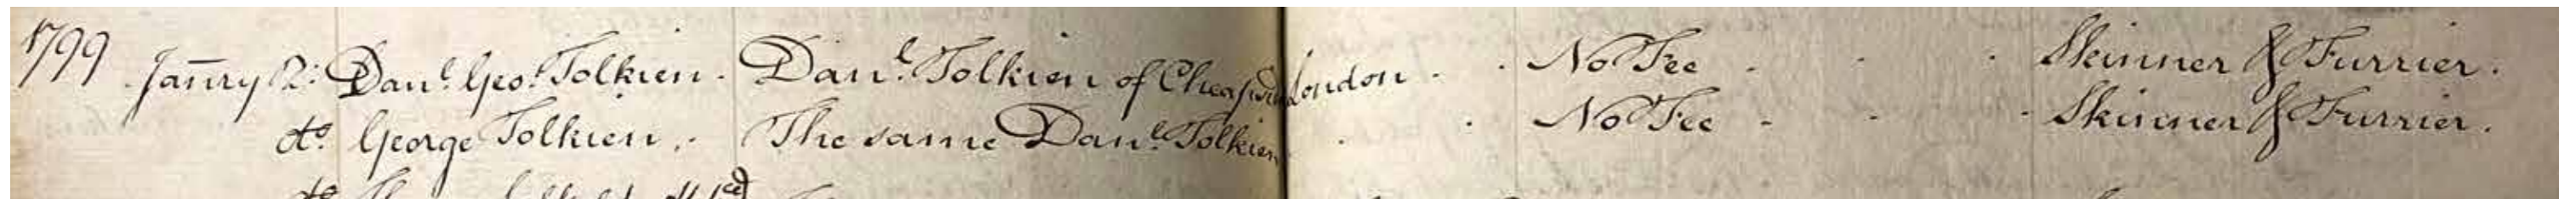 1799 Janry 2: Danl. Geo: Tolkien. Danl. Tolkien of London. No Fee Skinner & Furrier.
do. George Tolkien. The same Danl. Tolkien No Fee Skinner & Furrier.